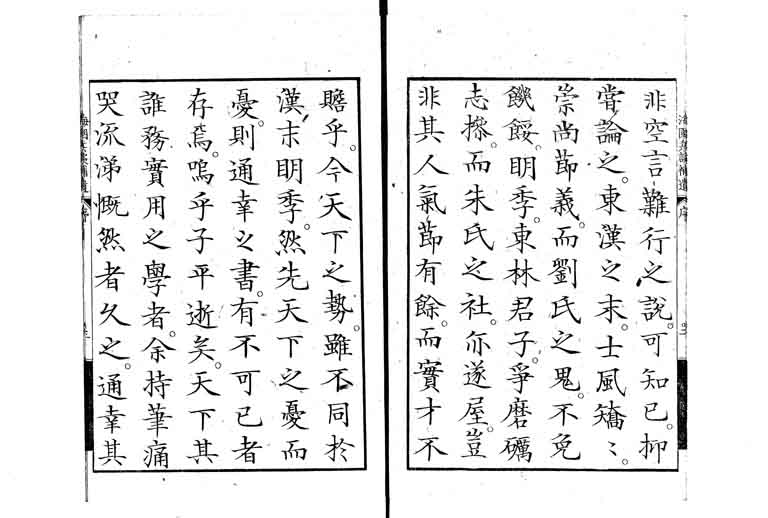 非空言難行之說。可知已。抑
甞論之。東漢之末。士風矯〻。
崇尚節義。而劉氏之鬼。不免
餓餒。明季。東林君子。爭磨礪
志操。而朱氏之社。亦遂屋。豈
非其人氣節有餘。而實才不
贍乎。今天下之勢。雖不同於
漢末明季。然先天下之憂而
憂。則通幸之書。有不可已者
存焉。嗚乎子平逝矣。天下其
誰務實用之學者。余持筆痛
哭流涕慨然者久之。通幸其